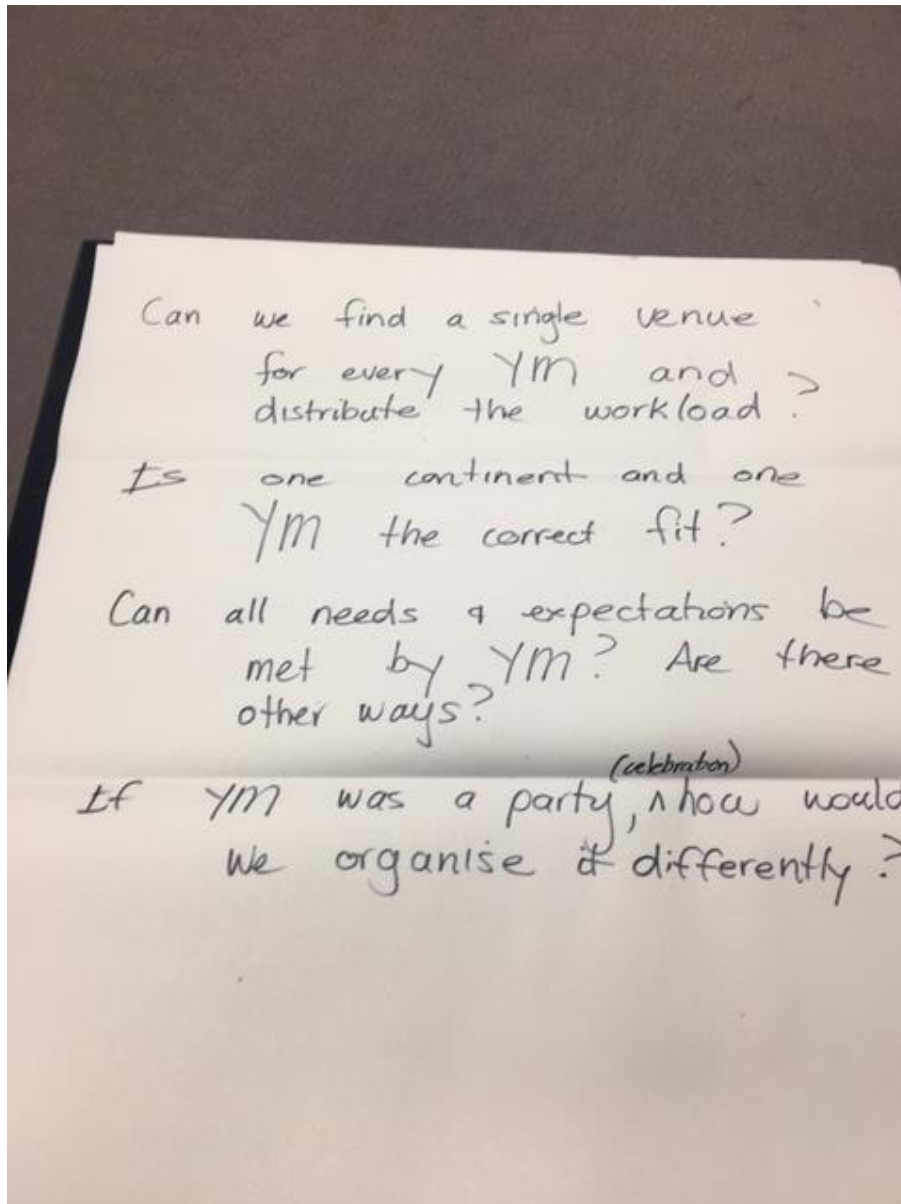 Can we find a single venue
for every YM and
distribute the workload?
Is one continent and one
YM the correct fit?
Can all needs & expectations be
met by YM? Are there
other ways?
(celebration)
If YM was a party, ^ how would
we organise it differently?